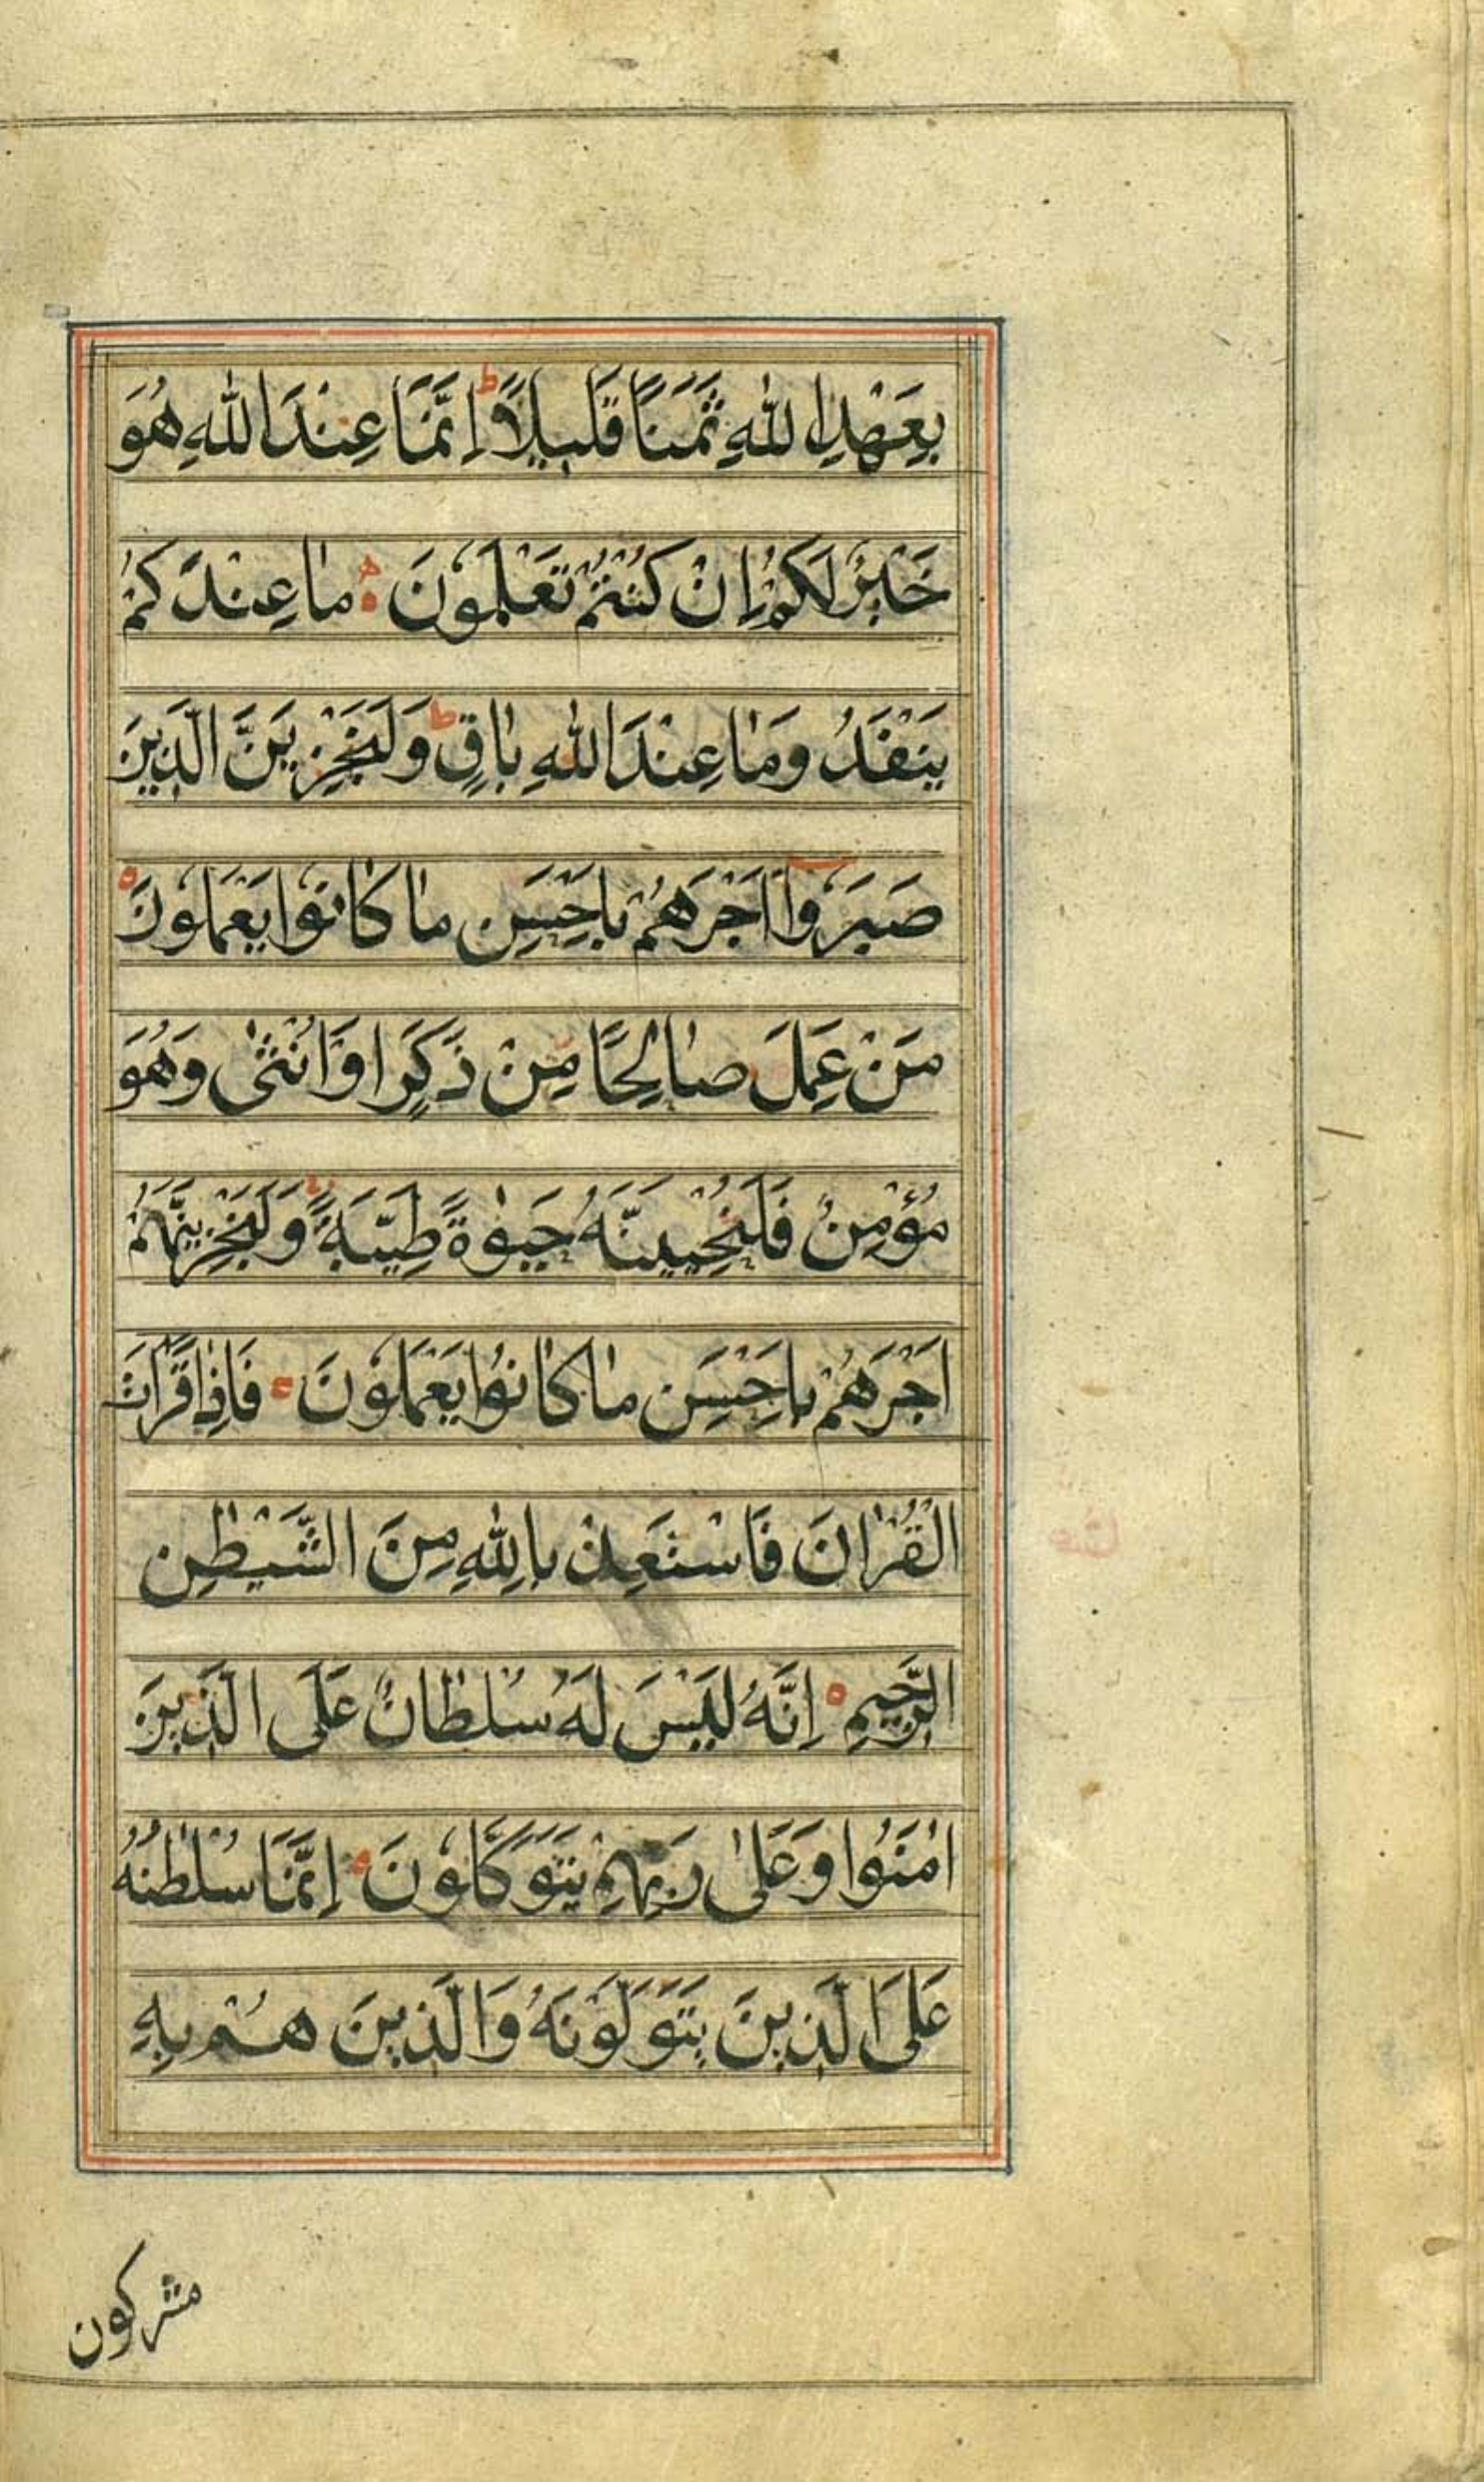 بِعَهْدِ اللّٰهِ ثَمَنًا قَلِيلًا ط اِنَّمَا عِنْدَ اللّٰهِ هُوَ
خَيْرٌ لَكُمْ اِنْ كُنْتُمْ تَعْلَمُونَ مٰا عِنْدَكُمْ
يَنْفَدُ وَمٰا عِنْدَ اللّٰهِ بٰاقٍ ط وَلَنَجْزِيَنَّ الَّذِينَ
صَبَرُوا اَجْرَهُمْ بِاَحْسَنِ مٰا كٰانُوا يَعْمَلُونَ
مَنْ عَمِلَ صٰالِحًا مِنْ ذَكَرٍ اَوْ اُنْثىٰ وَهُوَ
مُؤْمِنٌ فَلَنُحْيِيَنَّهُ حَيٰوةً طَيِّبَةً وَلَنَجْزِيَنَّهُمْ
اَجْرَهُمْ بِاَحْسَنِ مٰا كٰانُوا يَعْمَلُونَ فَاِذٰا قَرَاْتَ
الْقُرْاٰنَ فَاسْتَعِذْ بِاللّٰهِ مِنَ الشَّيْطٰنِ
الرَّجِيمِ اِنَّهُ لَيْسَ لَهُ سُلْطٰانٌ عَلَى الَّذِينَ
اٰمَنُوا وَعَلىٰ رَبِّهِمْ يَتَوَكَّلُونَ اِنَّمَا سُلْطٰنُهُ
عَلَى الَّذِينَ يَتَوَلَّوْنَهُ وَالَّذِينَ هُمْ بِهِ
مشركون